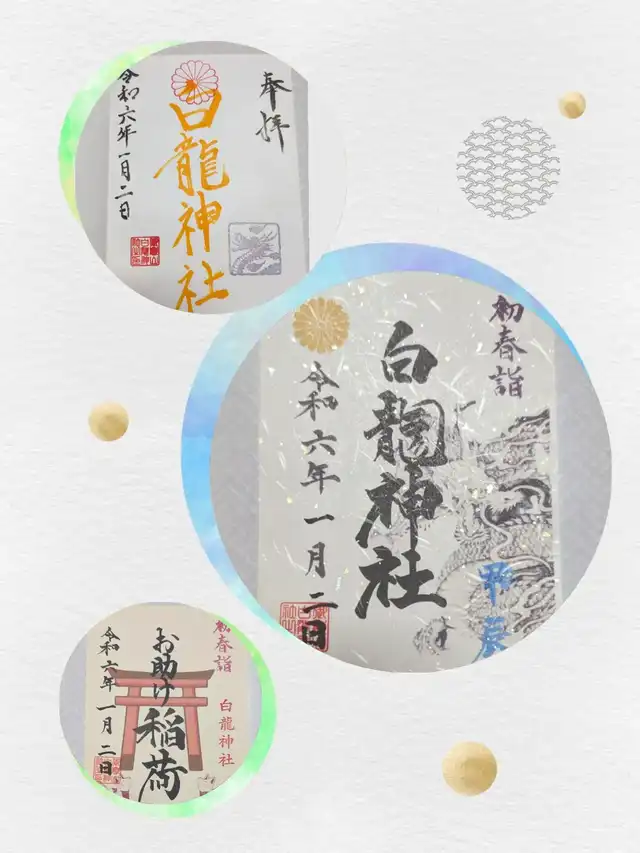 奉拝
白龍神社
令和六年一月二日
初春詣
白龍神社
令和六年一月二日
初春詣
白龍神社
お助け稲荷
令和六年一月二日